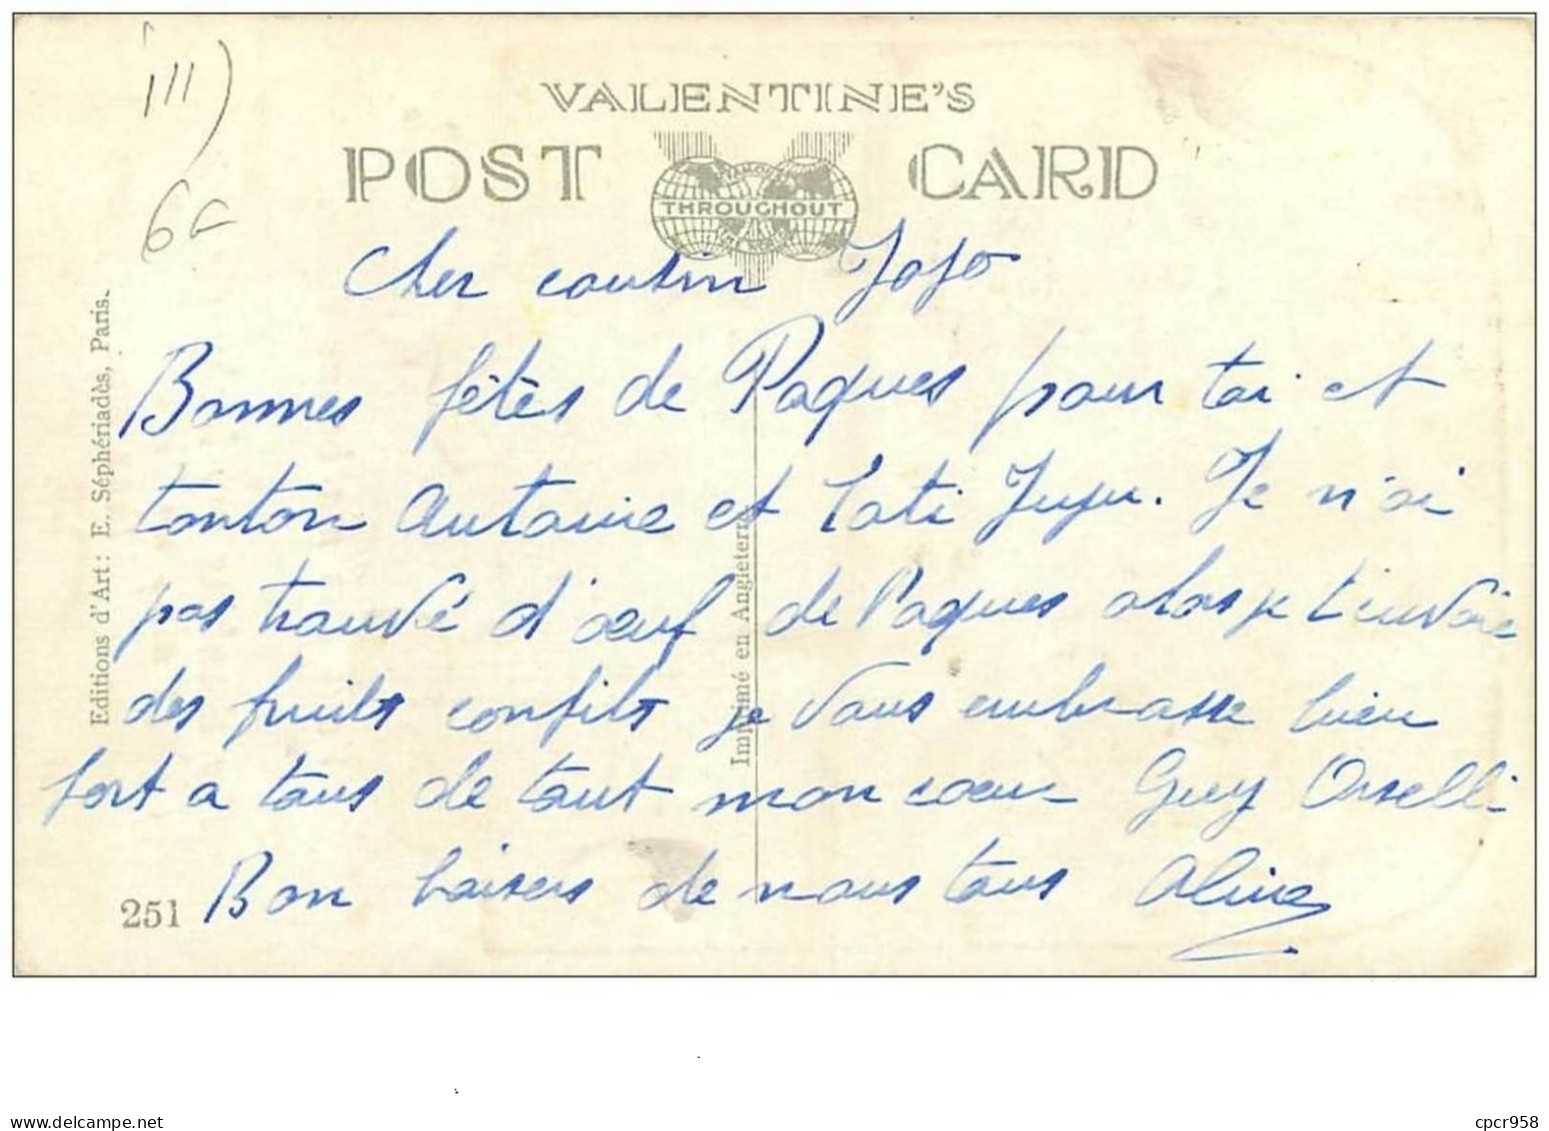 VALENTINE'S
POST CARD
THROUGHOUT
Cher cousin Jojo
Bonnes fêtes de Paques pour toi et
tonton Antoine et Tati Juju. Je n'ai
pas trouvé d'oeuf de Paques alors je t'envoie
des fruits confits je vous embrasse bien
fort a tous de tout mon coeur Guy Orselli
Bon baisers de nous tous Aline
251
Editions d'Art: E. Séphériadès, Paris.
Imprimé en Angleterre
www.delcampe.net
cpcr958